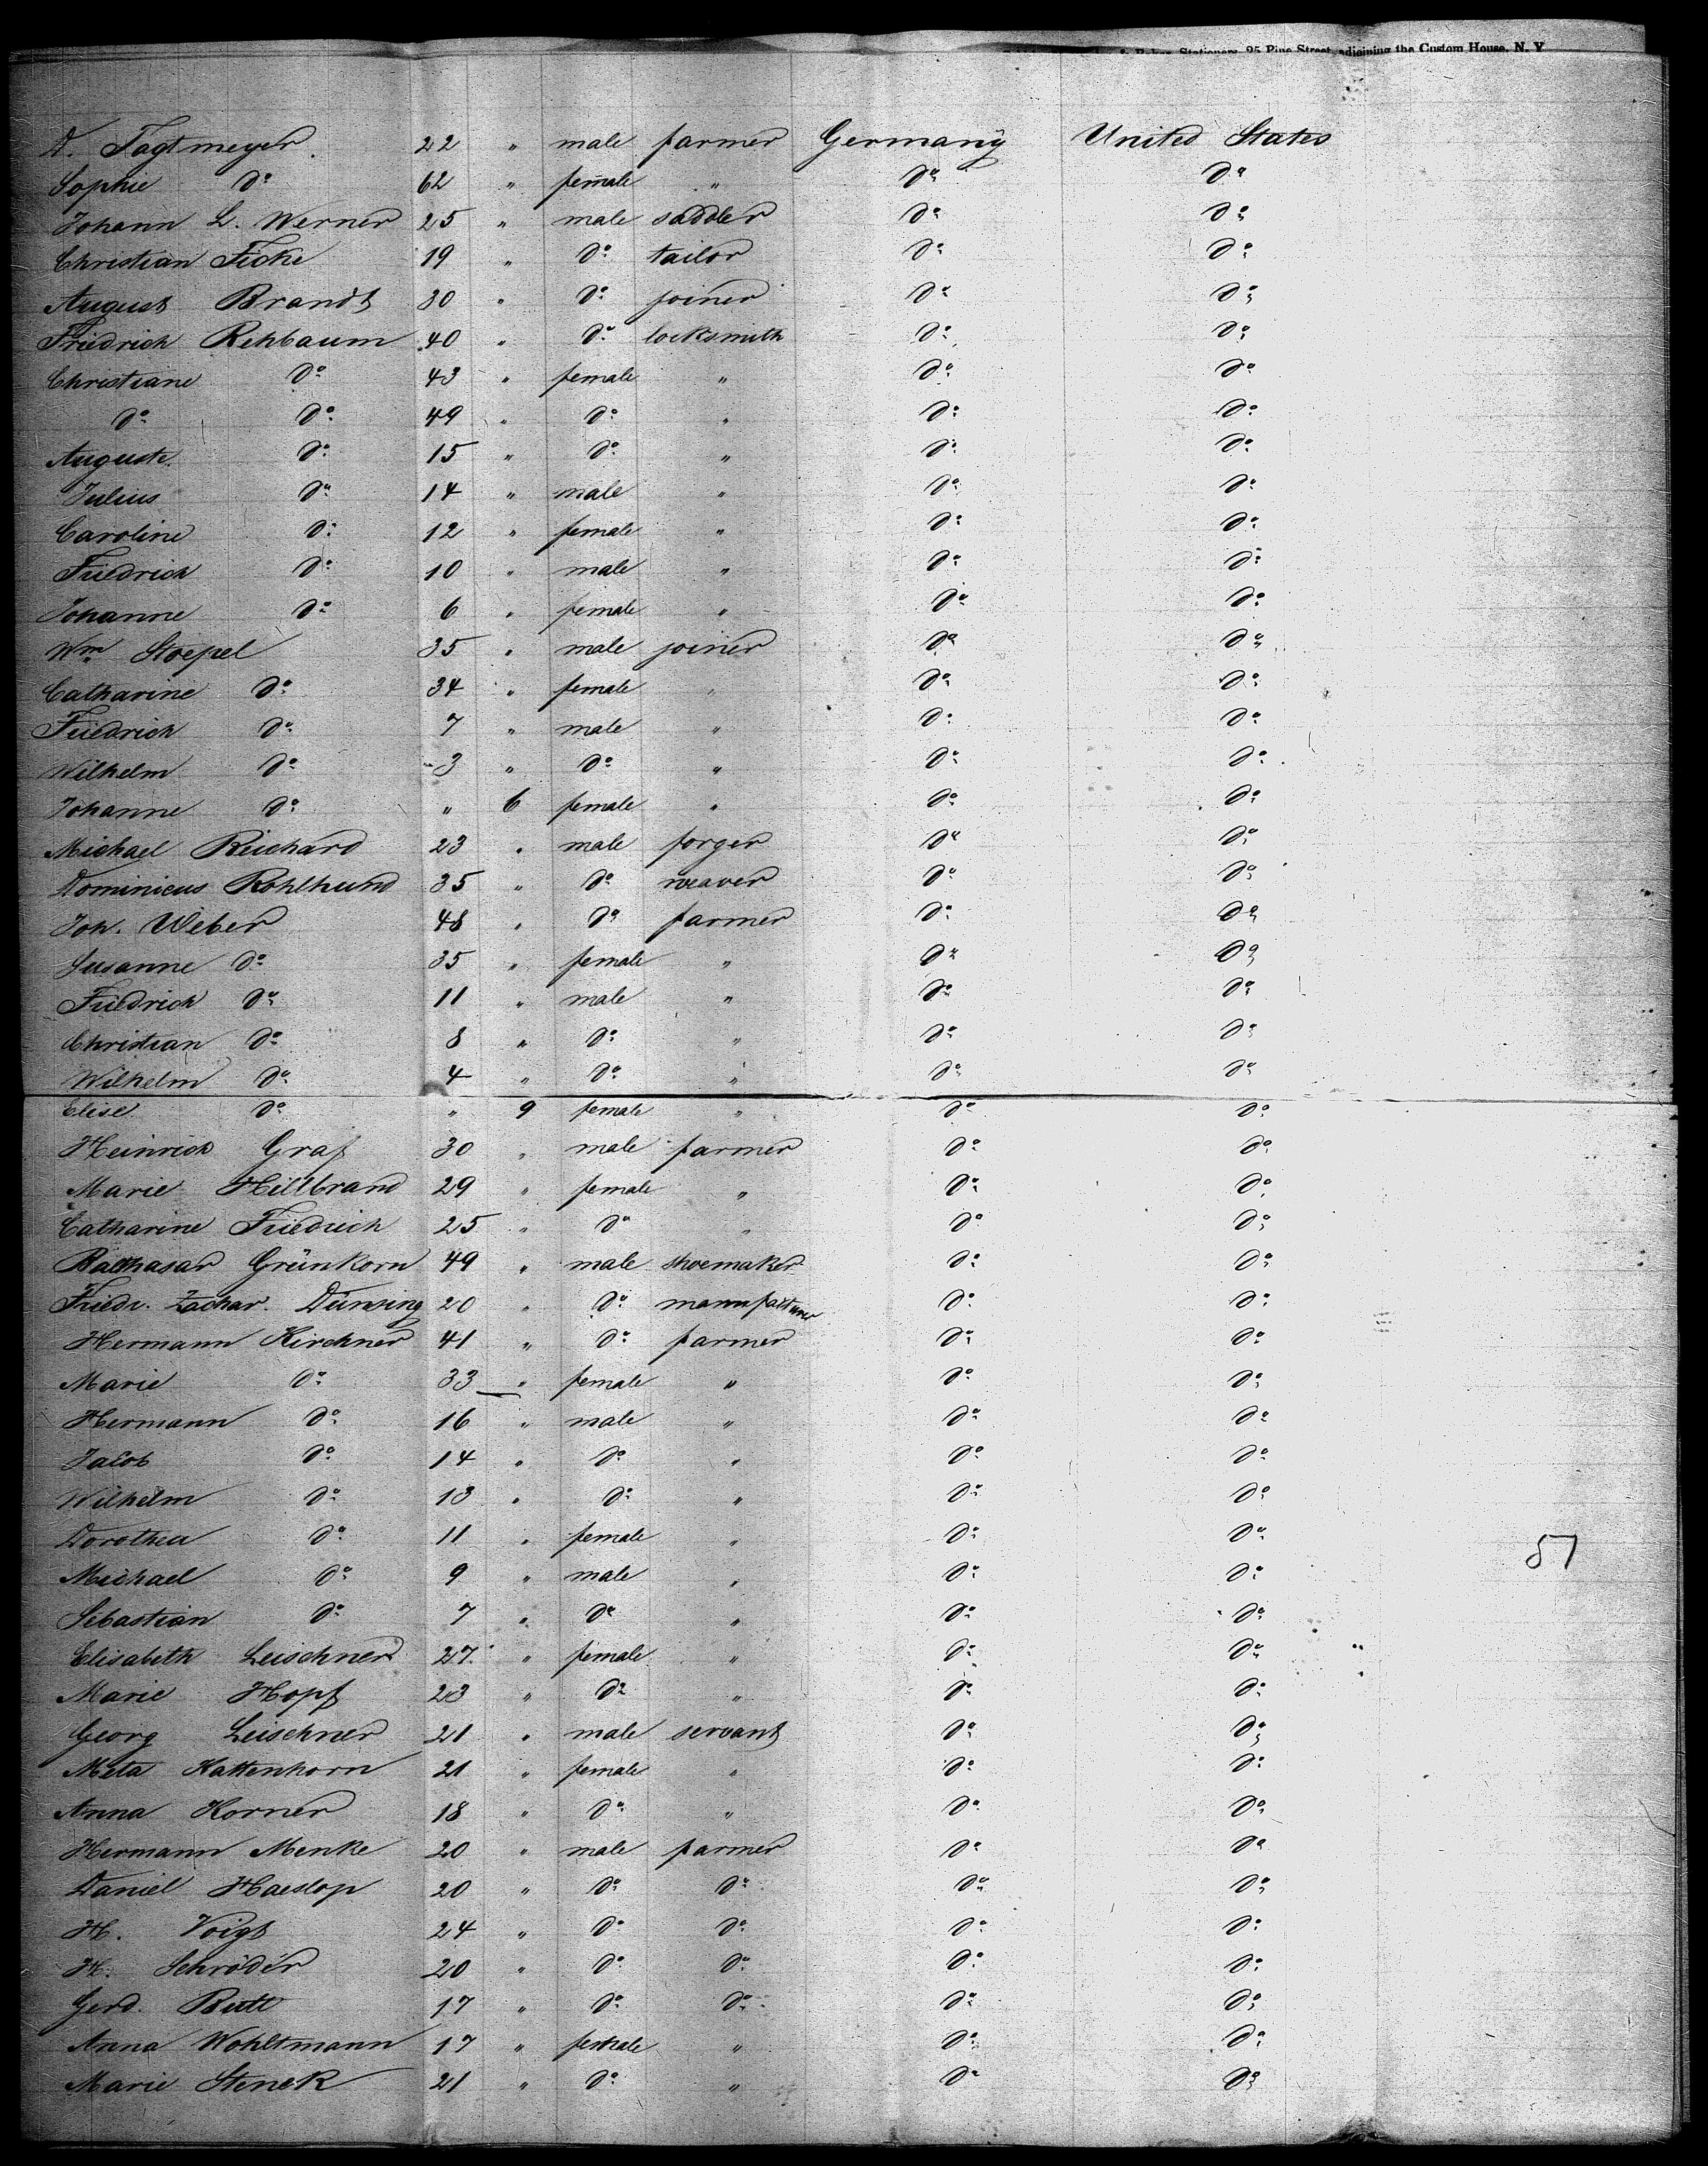 Stationers, 95 Pine Street adjoining the Custom House, N. Y.
D. Tagtmeyer. 22 " male farmer Germany United States
Sophie do 62 " female " do do
Johann L. Werner 25 " male saddler do do
Christian Ficke 19 " do tailor do do
August Brandt 30 " do joiner do do
Friedrich Rehbaum 40 " do locksmith do do
Christiane do 43 " female " do do
do do 49 " do " do do
Auguste do 15 " do " do do
Julius do 14 " male " do do
Caroline do 12 " female " do do
Friedrich do 10 " male " do do
Johanne do 6 " female " do do
Wm Stoepel 35 " male joiner do do
Catharine do 34 " female " do do
Friedrich do 7 " male " do do
Wilhelm do 3 " do " do do
Johanne do " 6 female " do do
Michael Reichard 23 " male forger do do
Dominicus Rohlhund 35 " do weaver do do
Joh. Weber 48 " do farmer do do
Susanne do 35 " female " do do
Friedrich do 11 " male " do do
Christian do 8 " do " do do
Wilhelm do 4 " do " do do
Elise do " 9 female " do do
Heinrich Graf 30 " male farmer do do
Marie Hillbrand 29 " female " do do
Catharine Friedrich 25 " do " do do
Balthasar Grünkorn 49 " male shoemaker do do
Friedr. Zachar. Dünsing 20 " do manufacturer do do
Hermann Kirchner 41 " do farmer do do
Marie do 33 " female " do do
Hermann do 16 " male " do do
Jacob do 14 " do " do do
Wilhelm do 13 " do " do do
Dorothea do 11 " female " do do
57
Michael do 9 " male " do do
Sebastian do 7 " do " do do
Elisabeth Leischner 27 " female " do do
Marie Hopf 23 " do " do do
Georg Leischner 21 " male servant do do
Meta Kattenhorn 21 " female " do do
Anna Korner 18 " do " do do
Hermann Menke 20 " male farmer do do
Daniel Haeslop 20 " do do do do
H. Voigt 24 " do do do do
H. Schröder 20 " do do do do
Gerd. Butt 17 " do do do do
Anna Wohltmann 17 " female " do do
Marie Stenck 21 " do " do do